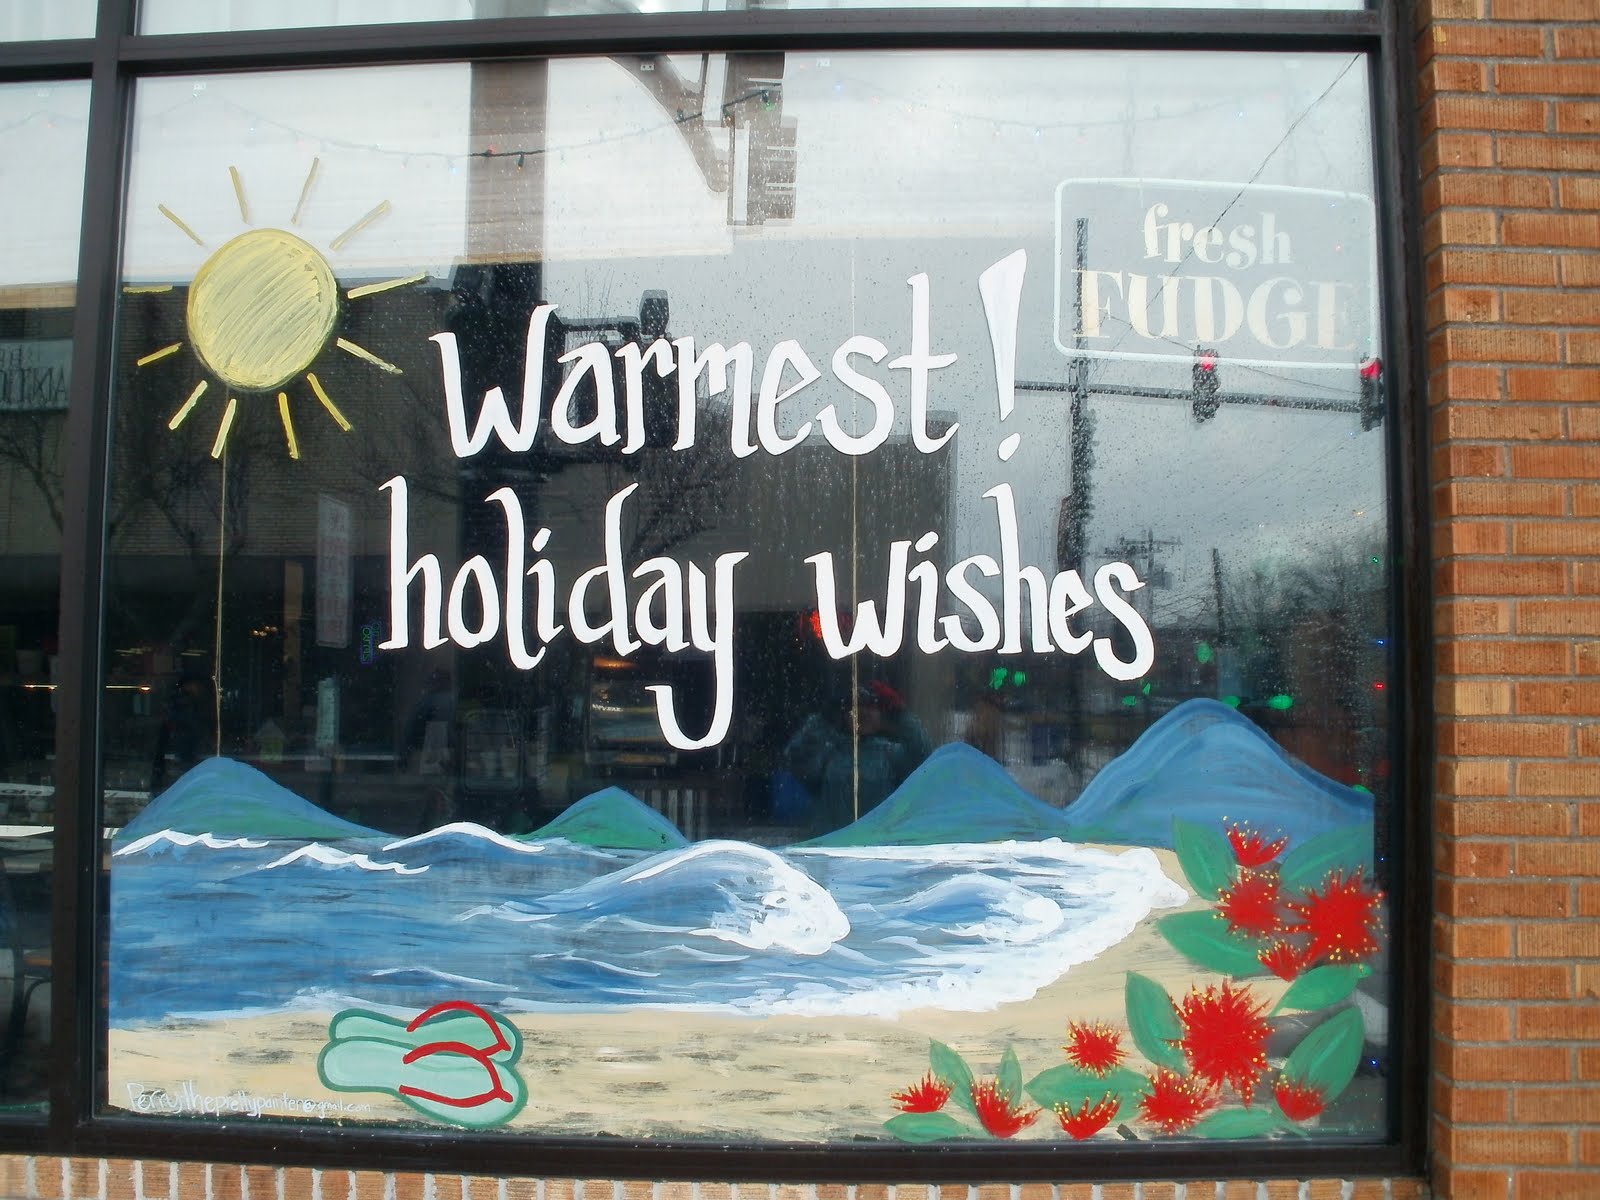 fresh
FUDGE
Warmest!
holiday wishes
Perrytheprettypainter@gmail.com